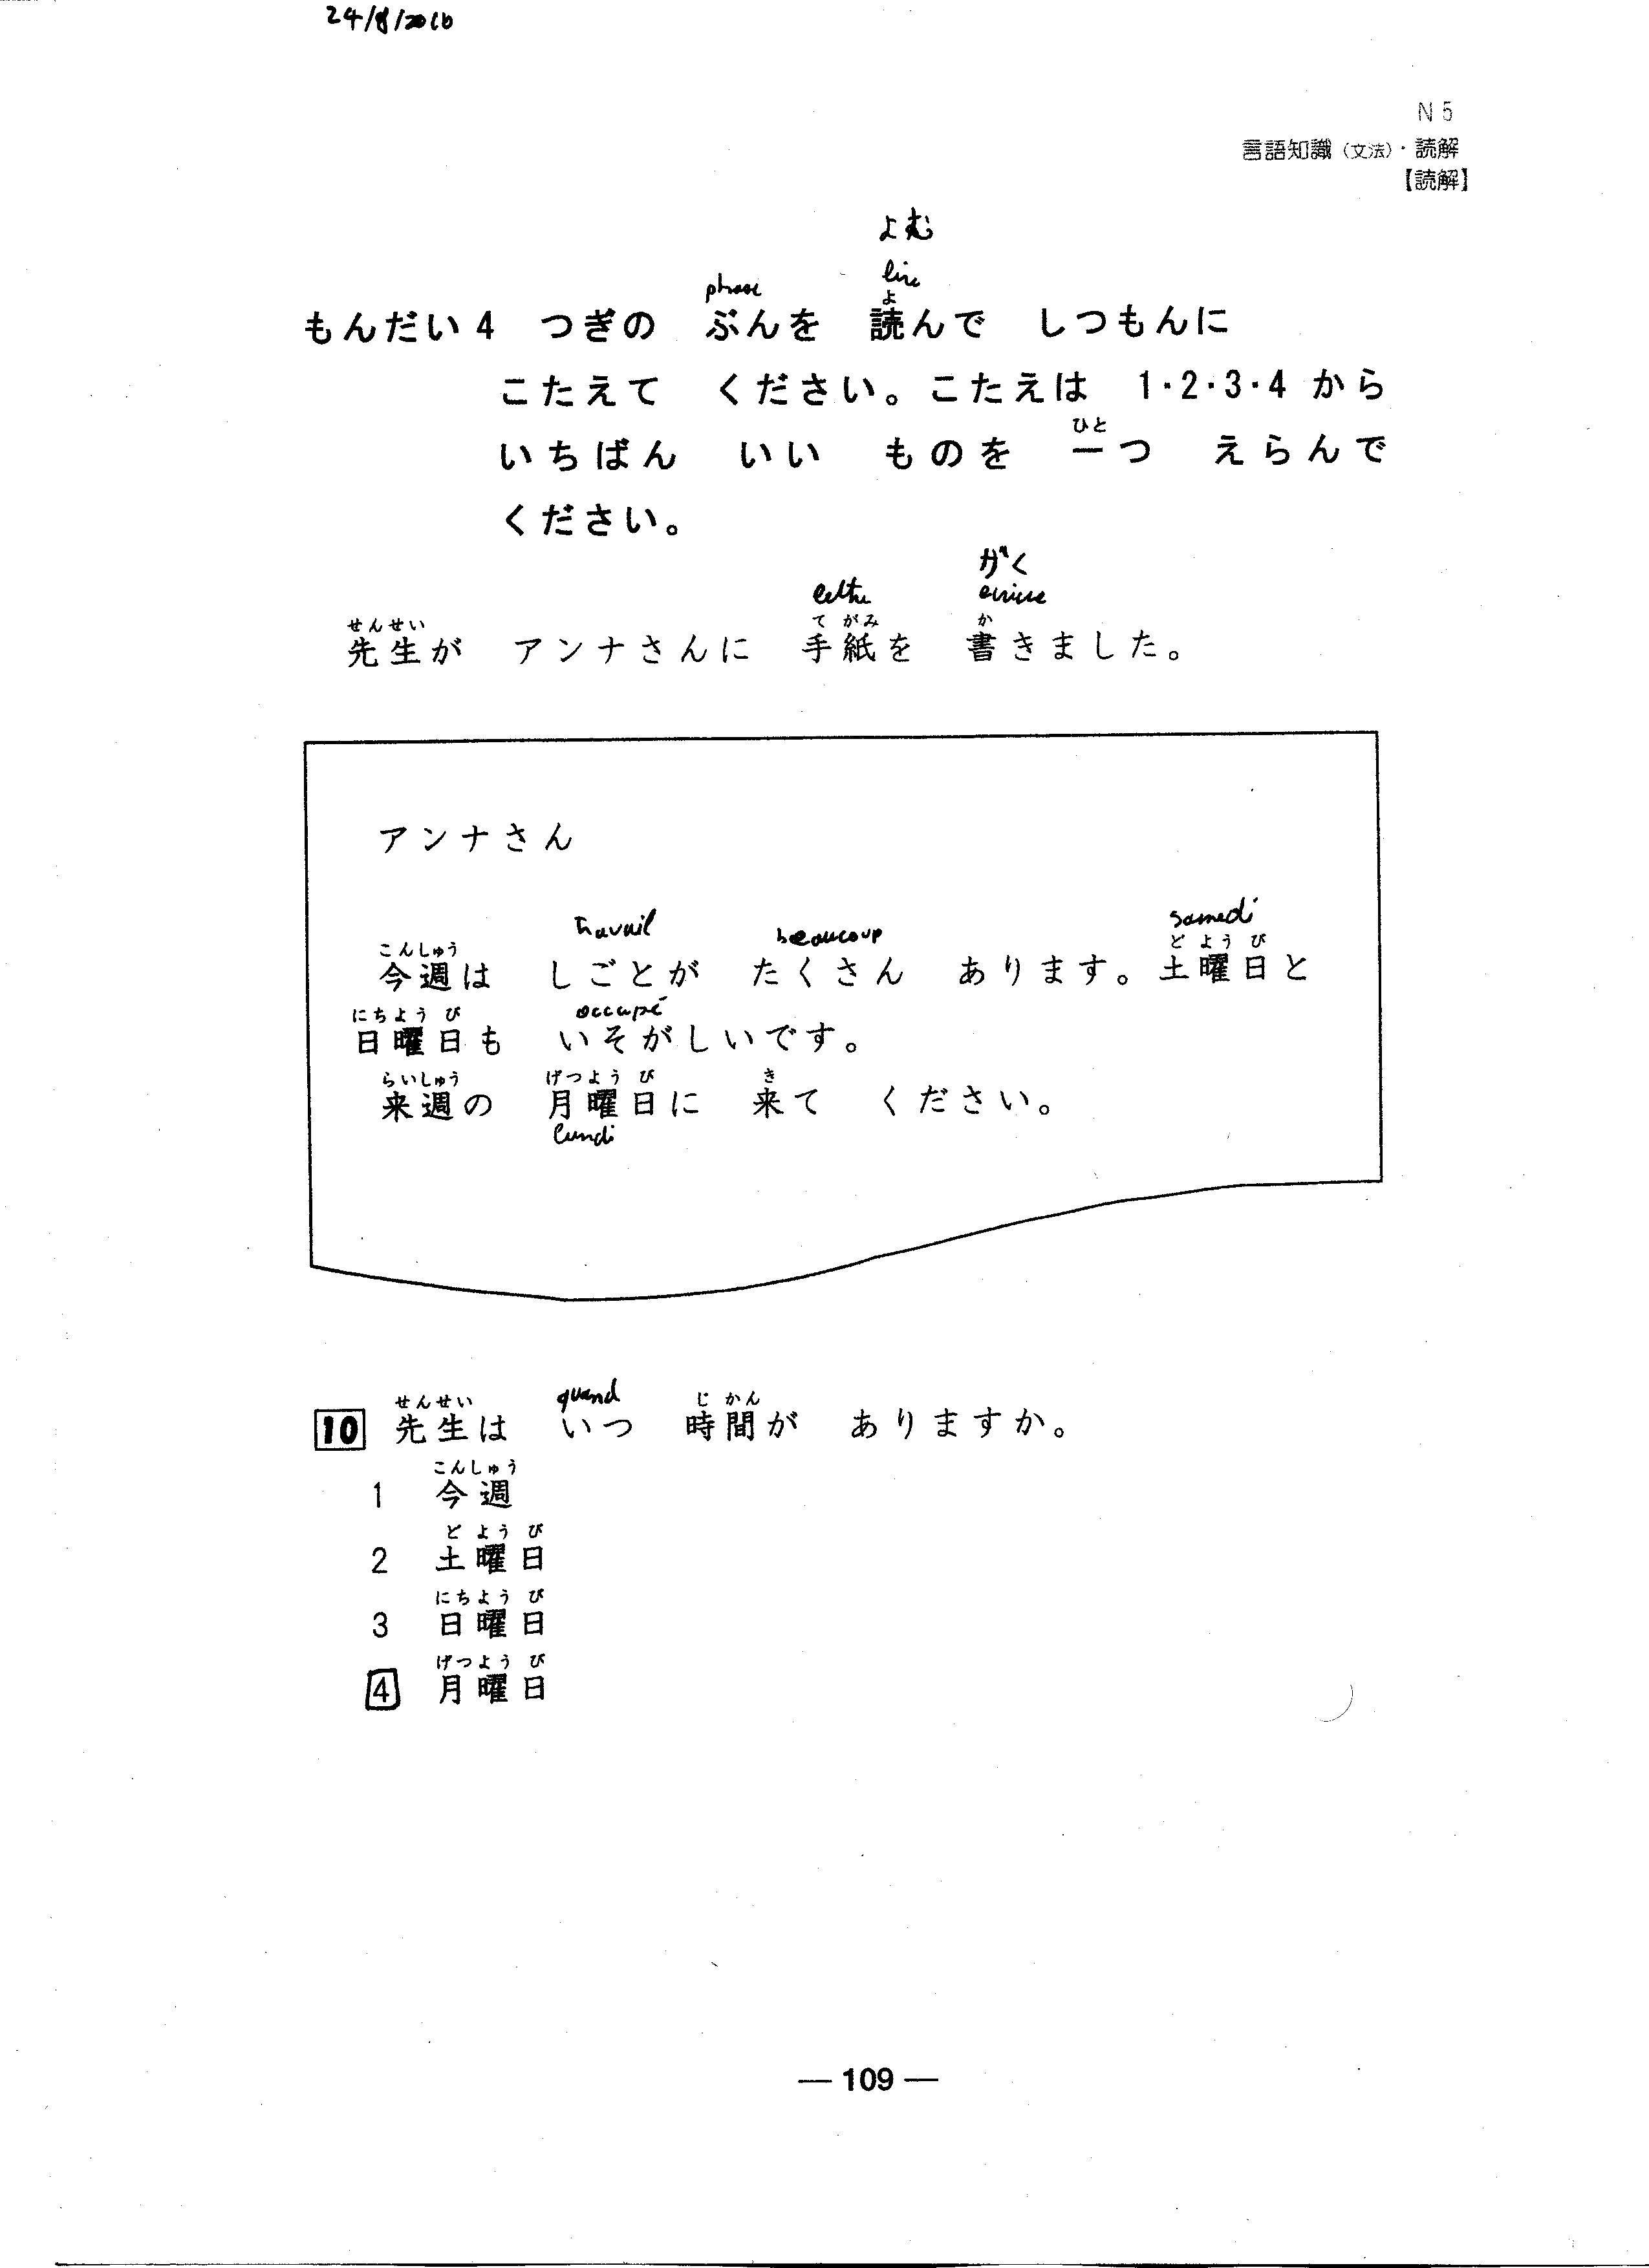 24/8/2016
N5
言語知識（文法）・読解
【読解】
よむ
phrase lire
よ
もんだい4 つぎの ぶんを 読んで しつもんに
こたえて ください。こたえは 1・2・3・4 から
ひと
いちばん いい ものを 一つ えらんで
ください。
がく
lettre écrire
せんせい てがみ か
先生が アンナさんに 手紙を 書きました。
アンナさん
travail beaucoup samedi
こんしゅう どようび
今週は しごとが たくさん あります。土曜日と
にちようび occupé
日曜日も いそがしいです。
らいしゅう げつようび き
来週の 月曜日に 来て ください。
lundi
せんせい quand じかん
10 先生は いつ 時間が ありますか。
こんしゅう
1 今週
どようび
2 土曜日
にちようび
3 日曜日
げつようび
4 月曜日
— 109 —